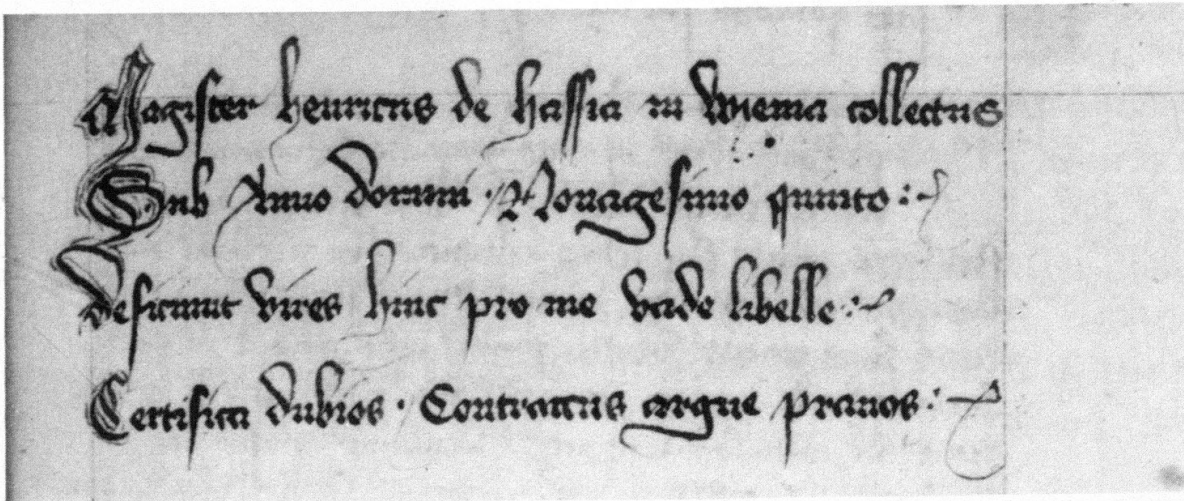 Magister henricus de hassia in wienna collectus
Sub Anno domini · Nonagesimo quinto :~
Deficiunt vires hinc pro me vade libelle :~
Certifica dubios · Contractus argue pravos :~